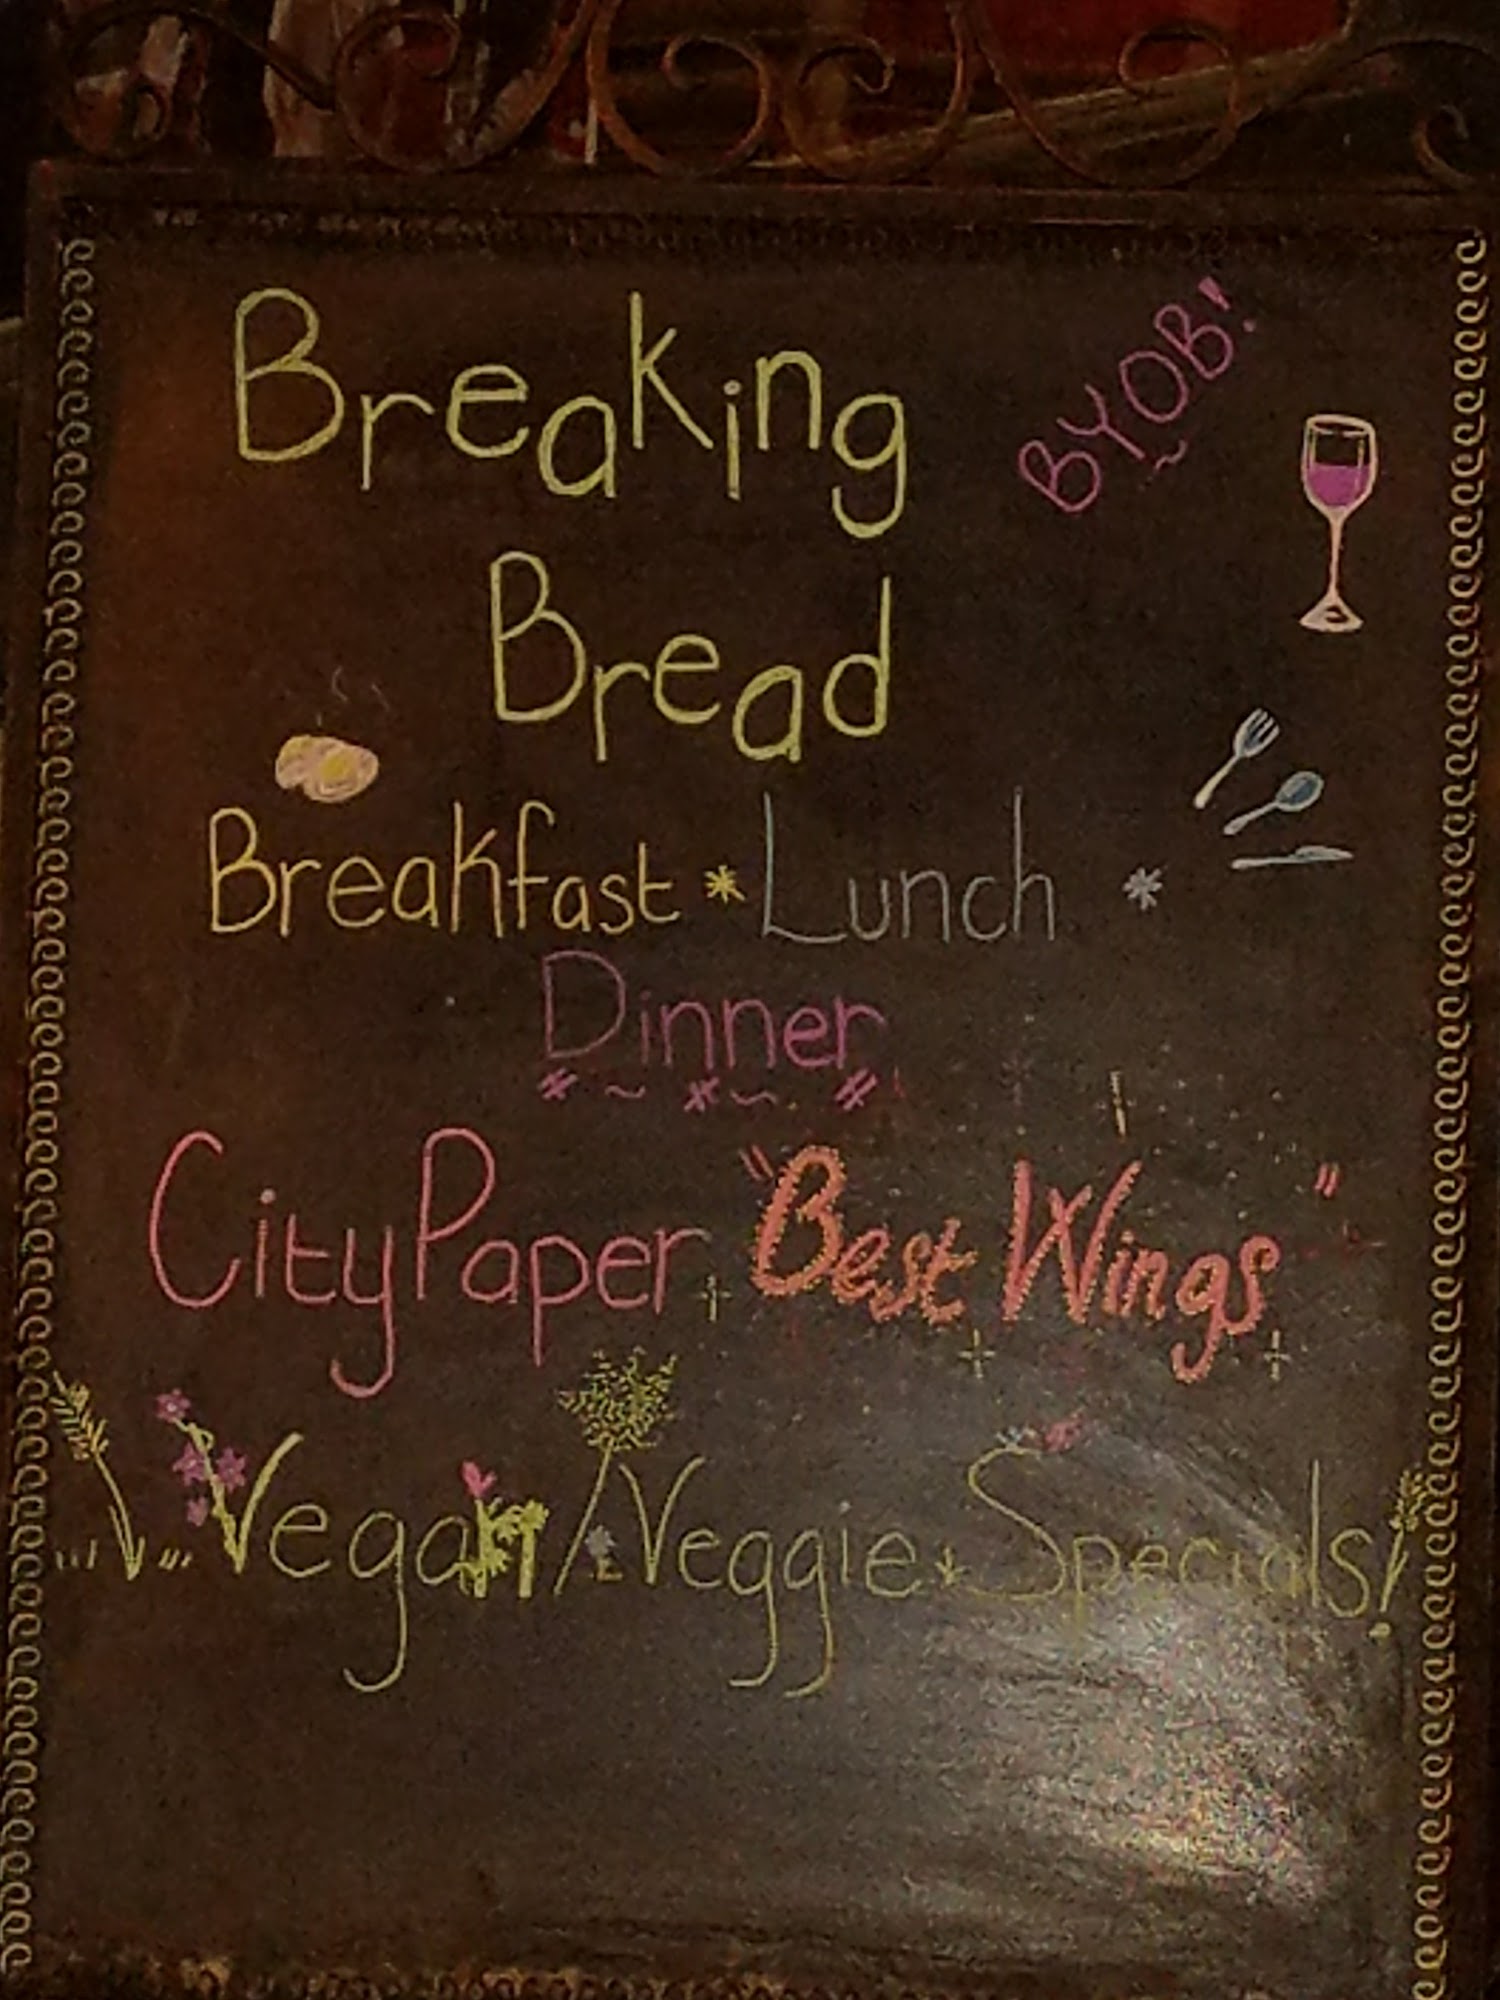 Breaking
BYOB!
Bread
Breakfast * Lunch *
Dinner
CityPaper "Best Wings"
Vegan/Veggie Specials!